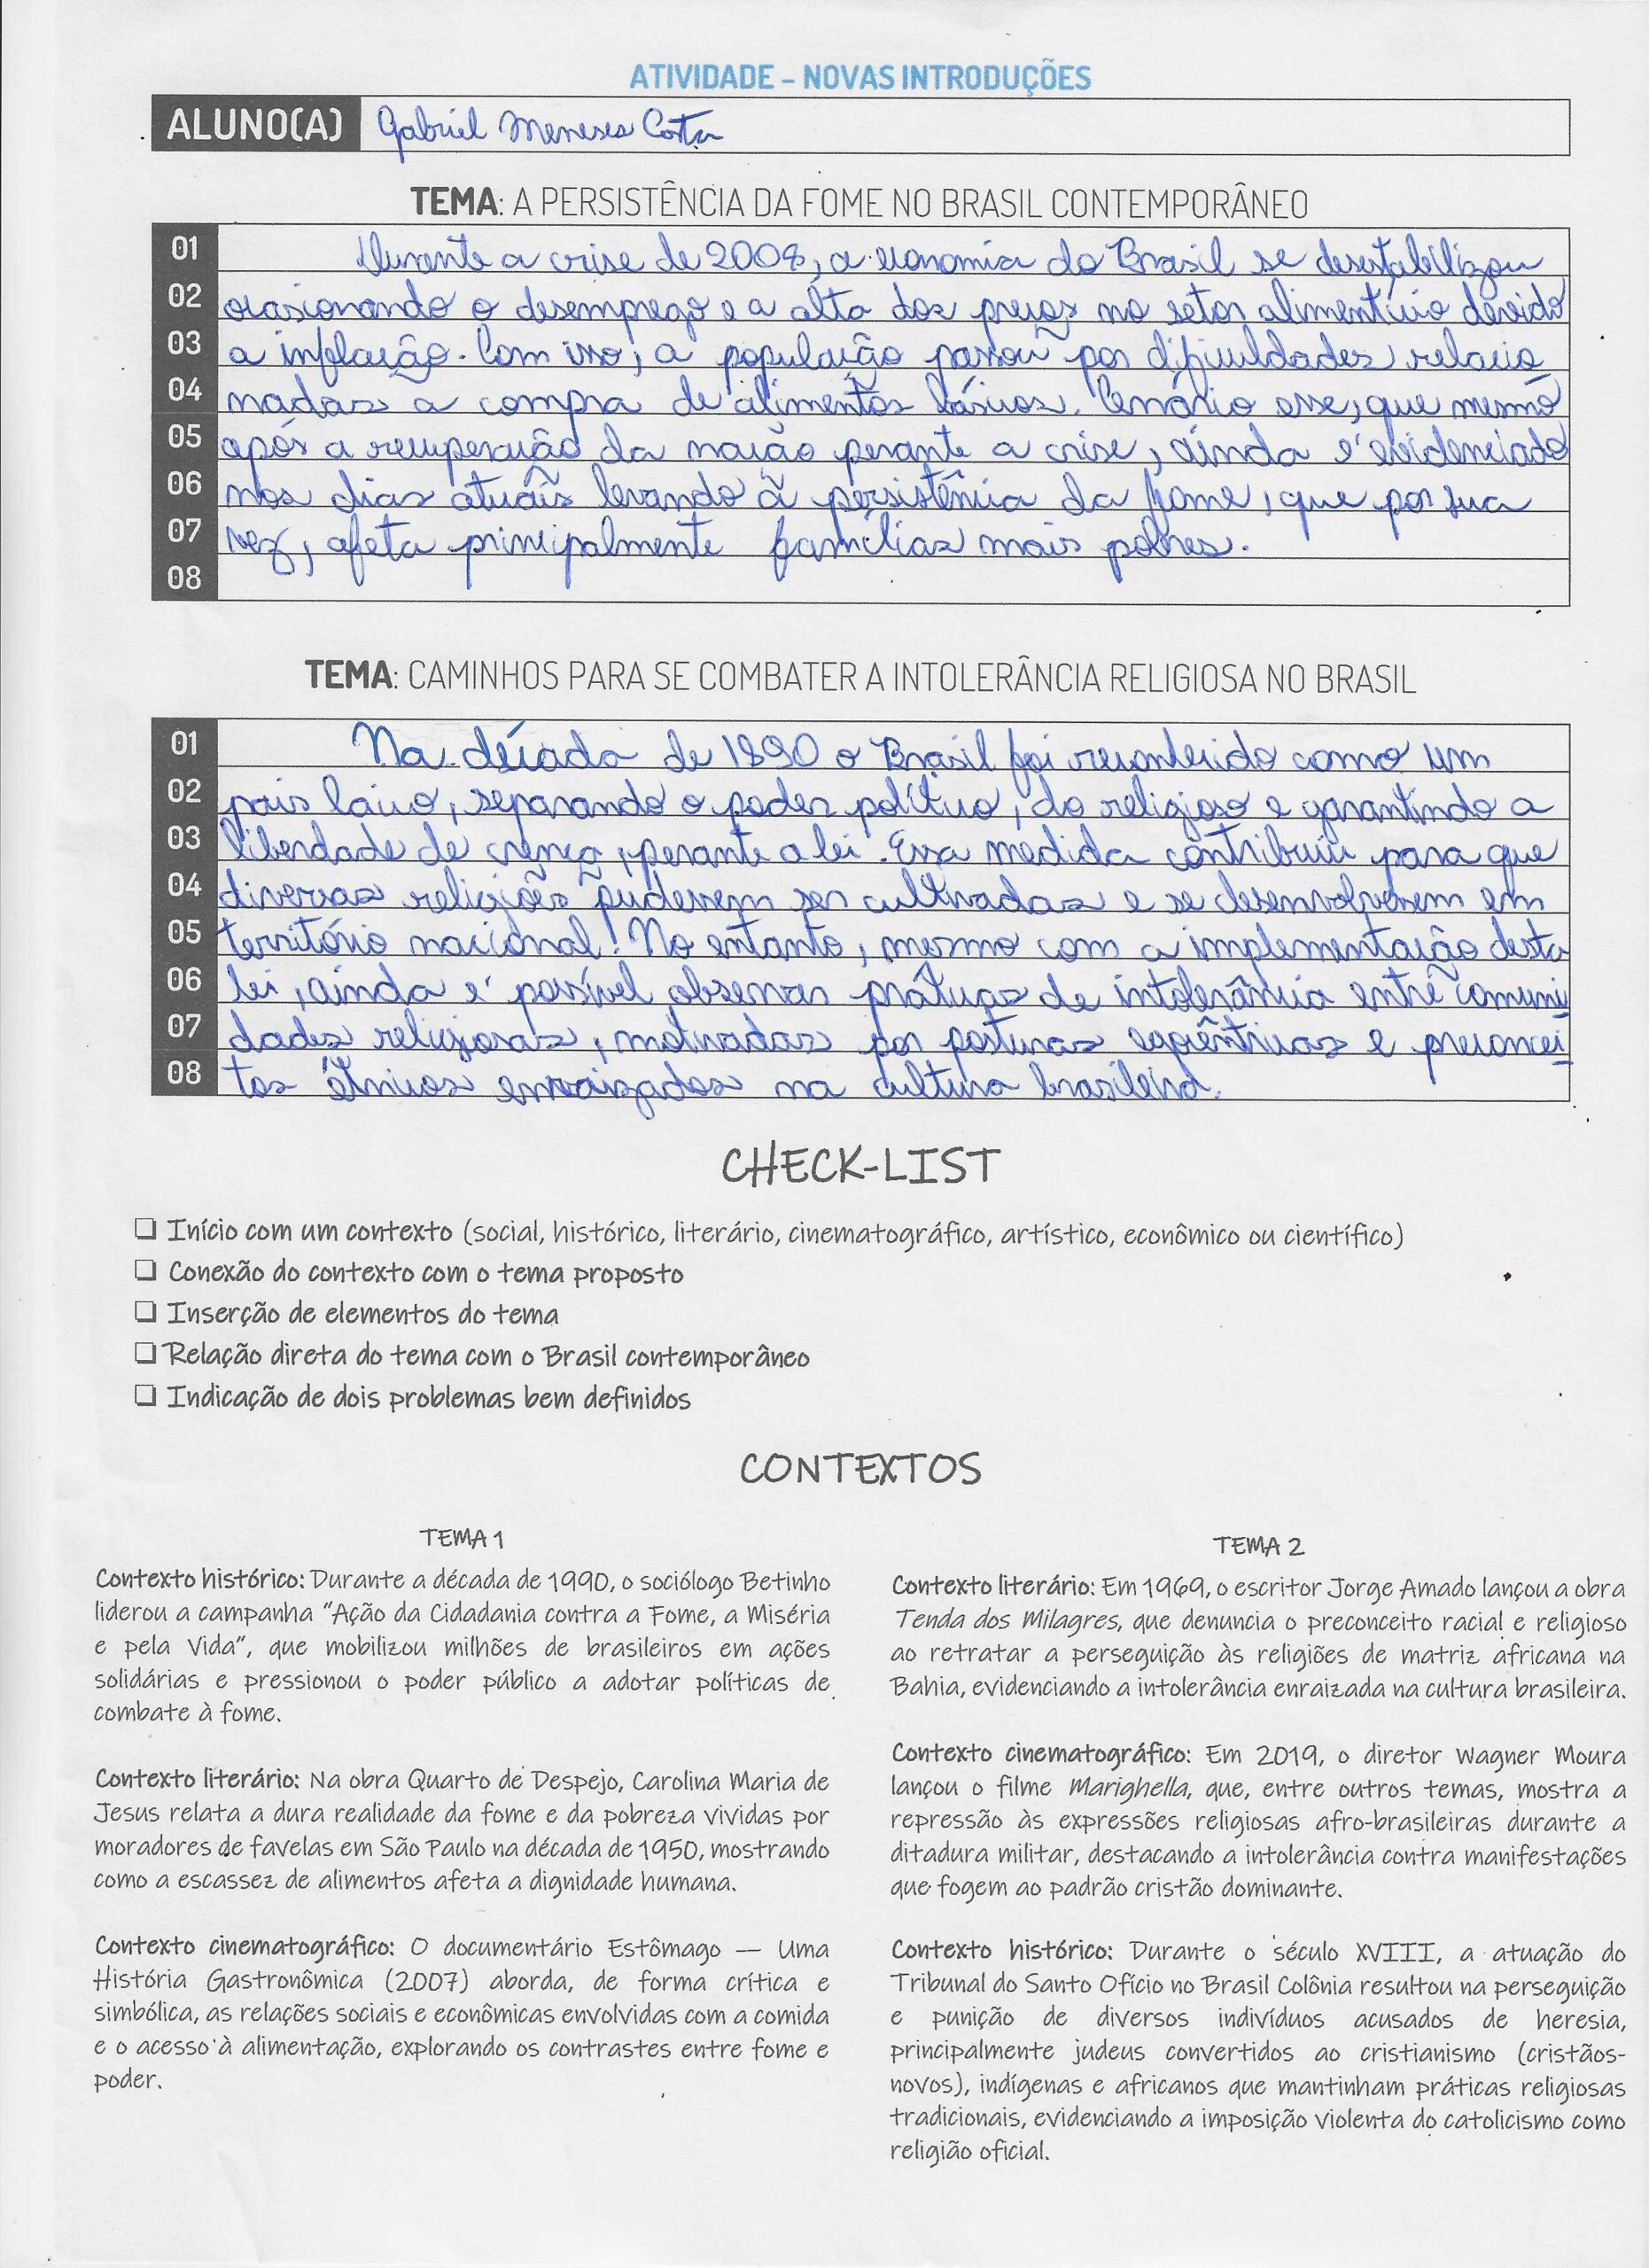 ATIVIDADE – NOVAS INTRODUÇÕES
ALUNO(A) Gabriel Meneses Costa
TEMA: A PERSISTÊNCIA DA FOME NO BRASIL CONTEMPORÂNEO
01 Durante a crise de 2008, a economia do Brasil se desestabilizou
02 ocasionando o desemprego e a alta dos preços no setor alimentício devido
03 a inflação. Com isso, a população passou por dificuldades relacio
04 nadas a compra de alimentos básicos. Cenário esse, que mesmo
05 após a recuperação da nação perante a crise, ainda é evidenciado
06 nos dias atuais levando à persistência da fome, que por sua
07 vez, afeta principalmente famílias mais pobres.
08
TEMA: CAMINHOS PARA SE COMBATER A INTOLERÂNCIA RELIGIOSA NO BRASIL
01 Na década de 1890 o Brasil foi reconhecido como um
02 país laico, separando o poder político, do religioso e garantindo a
03 liberdade de crença, perante a lei. Essa medida contribuiu para que
04 diversas religiões pudessem ser cultivadas e se desenvolverem em
05 território nacional. No entanto, mesmo com a implementação desta
06 lei, ainda é possível observar práticas de intolerância entre comuni
07 dades religiosas, motivadas por posturas egocêntricas e preconcei
08 tos étnicos enraizados na cultura brasileira.
CHECK-LIST
❑ Início com um contexto (social, histórico, literário, cinematográfico, artístico, econômico ou científico)
❑ Conexão do contexto com o tema proposto
❑ Inserção de elementos do tema
❑ Relação direta do tema com o Brasil contemporâneo
❑ Indicação de dois problemas bem definidos
CONTEXTOS
TEMA 1
Contexto histórico: Durante a década de 1990, o sociólogo Betinho
liderou a campanha "Ação da Cidadania contra a Fome, a Miséria
e pela Vida", que mobilizou milhões de brasileiros em ações
solidárias e pressionou o poder público a adotar políticas de
combate à fome.
Contexto literário: Na obra Quarto de Despejo, Carolina Maria de
Jesus relata a dura realidade da fome e da pobreza vividas por
moradores de favelas em São Paulo na década de 1950, mostrando
como a escassez de alimentos afeta a dignidade humana.
Contexto cinematográfico: O documentário Estômago — Uma
História Gastronômica (2007) aborda, de forma crítica e
simbólica, as relações sociais e econômicas envolvidas com a comida
e o acesso à alimentação, explorando os contrastes entre fome e
poder.
TEMA 2
Contexto literário: Em 1969, o escritor Jorge Amado lançou a obra
Tenda dos Milagres, que denuncia o preconceito racial e religioso
ao retratar a perseguição às religiões de matriz africana na
Bahia, evidenciando a intolerância enraizada na cultura brasileira.
Contexto cinematográfico: Em 2019, o diretor Wagner Moura
lançou o filme Marighella, que, entre outros temas, mostra a
repressão às expressões religiosas afro-brasileiras durante a
ditadura militar, destacando a intolerância contra manifestações
que fogem ao padrão cristão dominante.
Contexto histórico: Durante o século XVIII, a atuação do
Tribunal do Santo Ofício no Brasil Colônia resultou na perseguição
e punição de diversos indivíduos acusados de heresia,
principalmente judeus convertidos ao cristianismo (cristãos-
novos), indígenas e africanos que mantinham práticas religiosas
tradicionais, evidenciando a imposição violenta do catolicismo como
religião oficial.